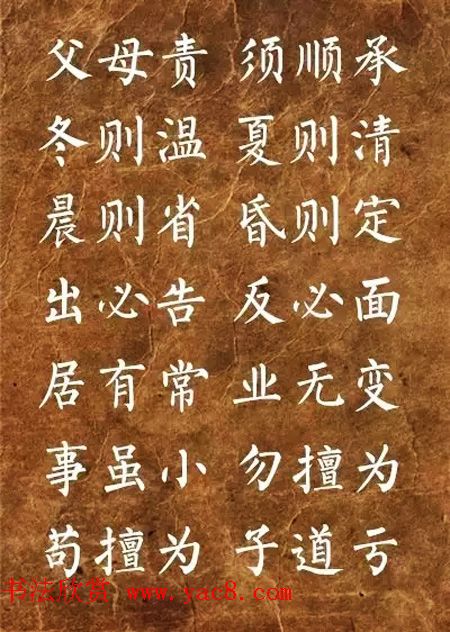 父母责 须顺承
冬则温 夏则清
晨则省 昏则定
出必告 反必面
居有常 业无变
事虽小 勿擅为
苟擅为 子道亏
书法欣赏 www.yac8.com